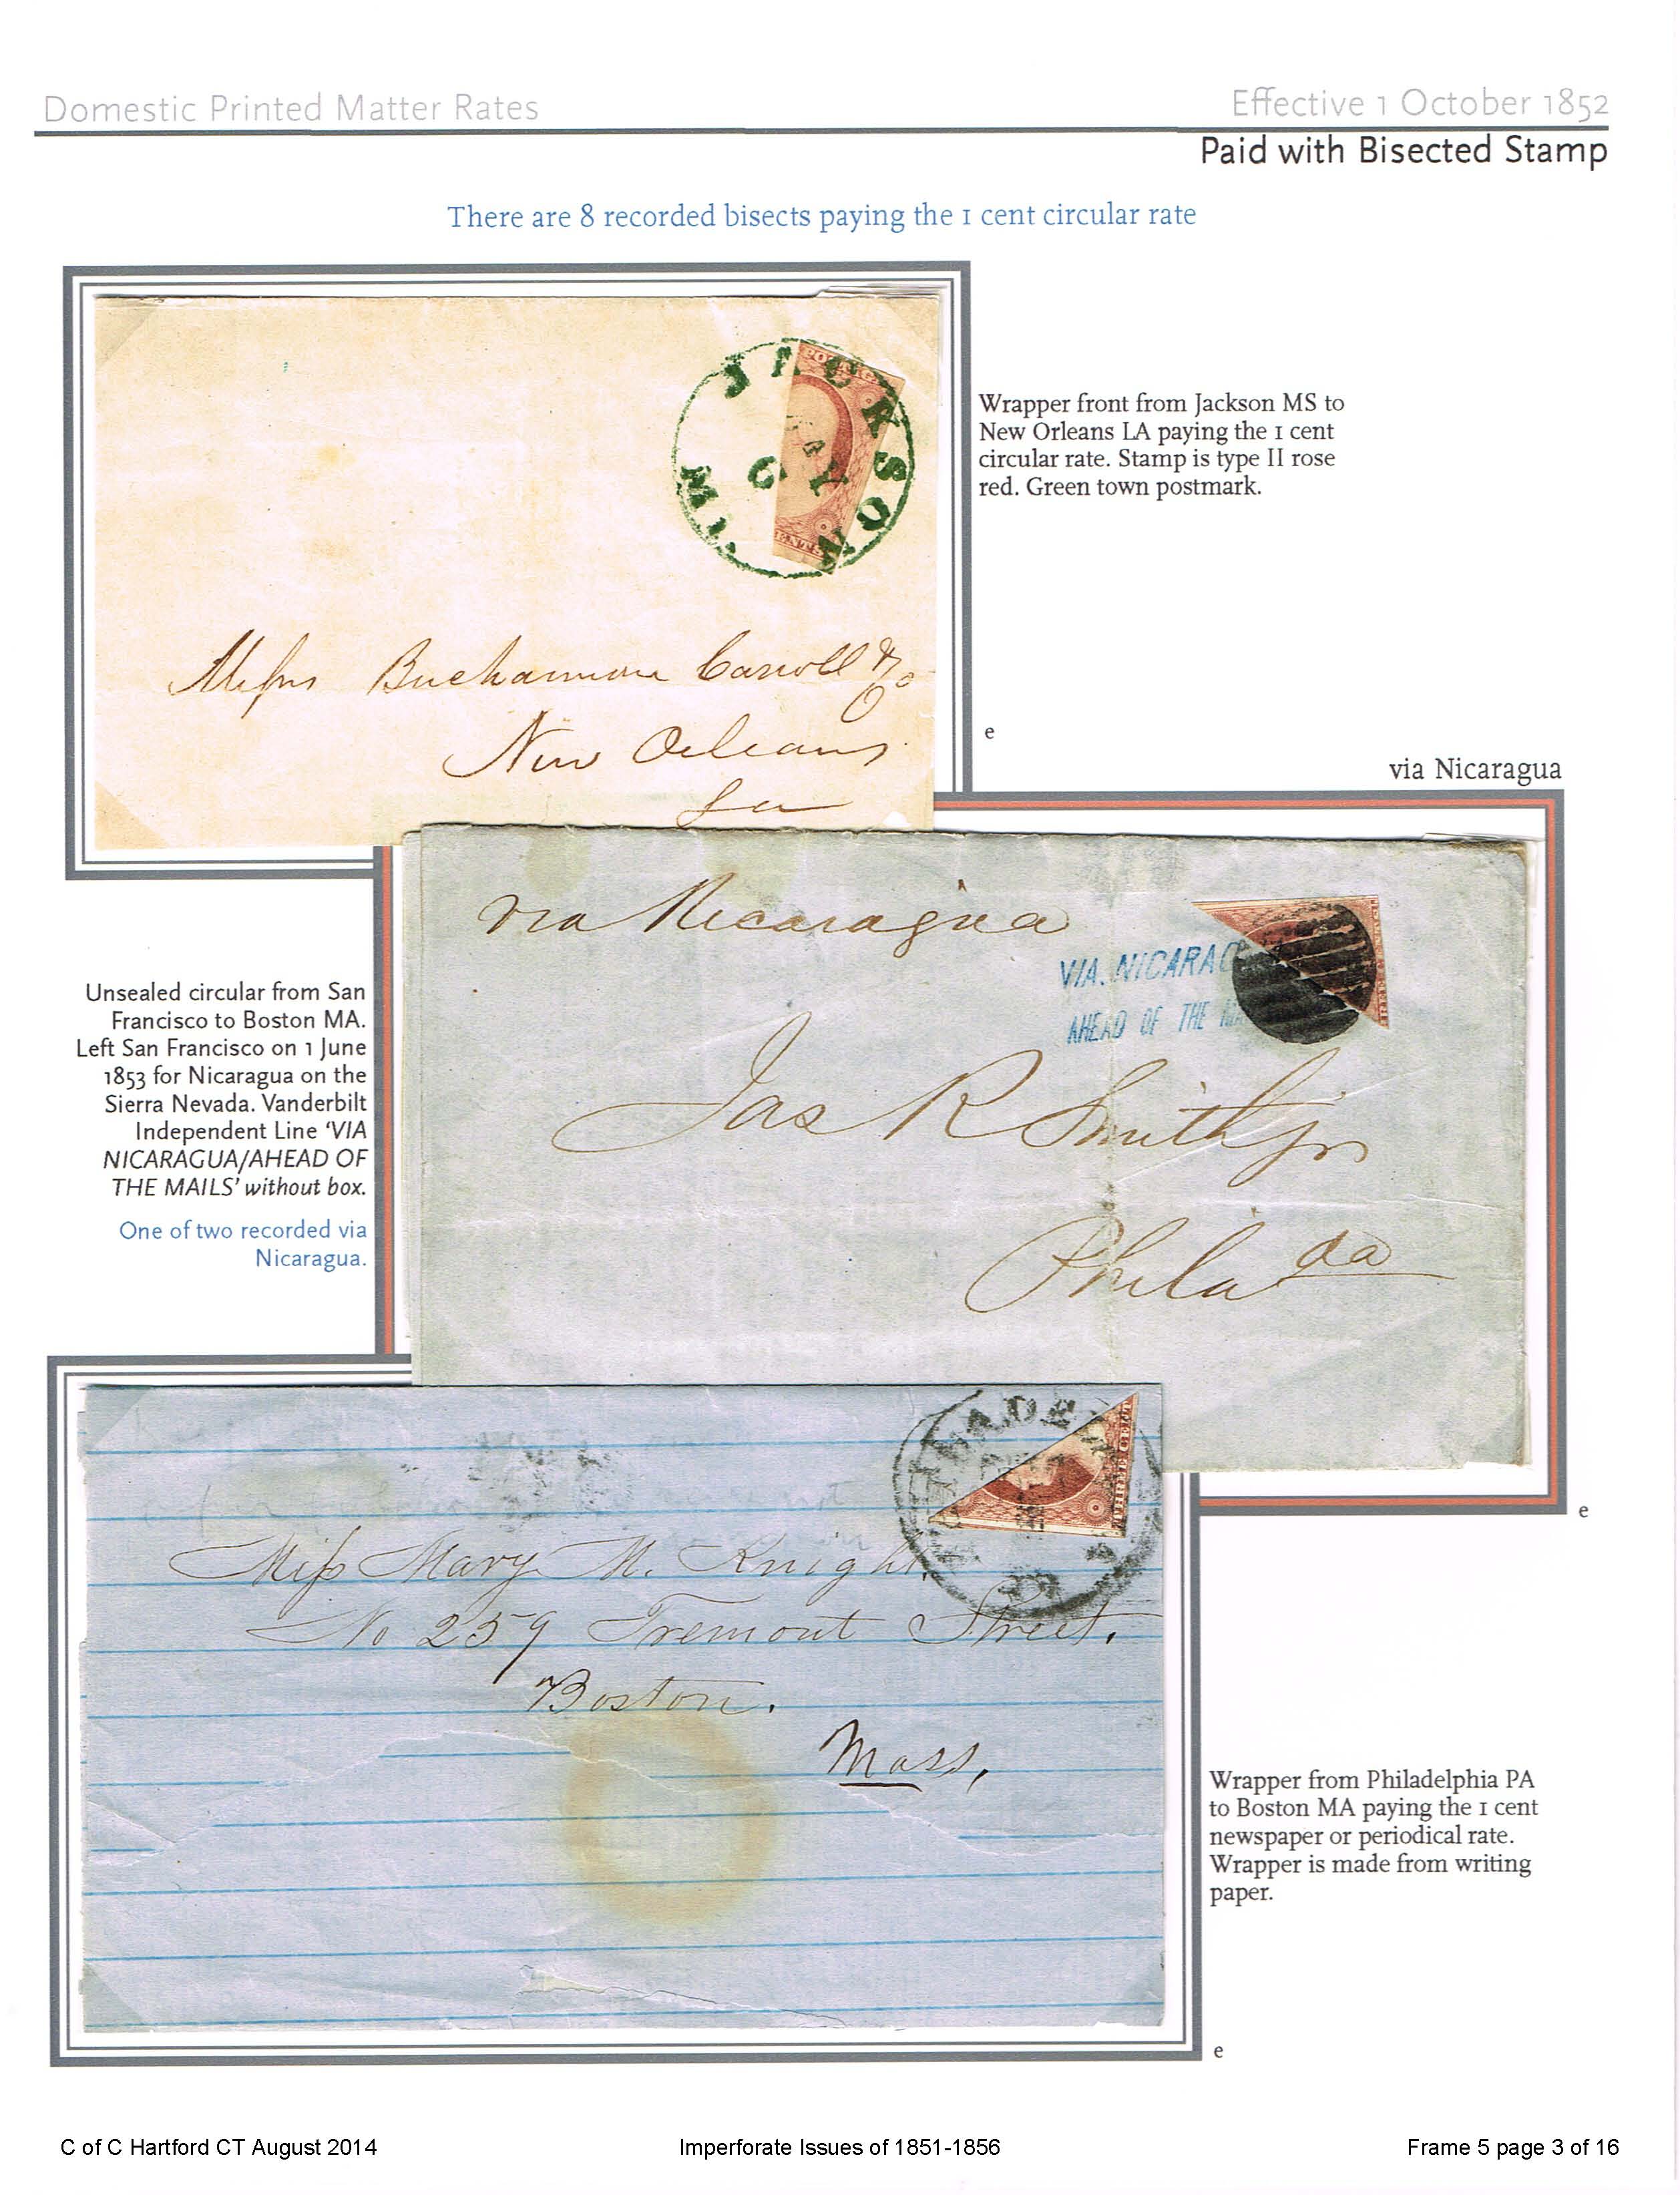 Domestic Printed Matter Rates
Effective 1 October 1852
Paid with Bisected Stamp
There are 8 recorded bisects paying the 1 cent circular rate
JACKSON
MAY
6
MI.
POSTAGE
CENTS
Wrapper front from Jackson MS to
New Orleans LA paying the 1 cent
circular rate. Stamp is type II rose
red. Green town postmark.
Messrs Buchannon Carroll & Co
New Orleans
La
e
via Nicaragua
via Nicaragua
VIA. NICARAG
AHEAD OF THE MA
Jas R Smith Jr
Philada
Unsealed circular from San
Francisco to Boston MA.
Left San Francisco on 1 June
1853 for Nicaragua on the
Sierra Nevada. Vanderbilt
Independent Line ‘VIA
NICARAGUA/AHEAD OF
THE MAILS’ without box.
One of two recorded via
Nicaragua.
e
THREE CENTS
Miss Mary M. Knight,
No 259 Tremont Street.
Boston.
Mass,
Wrapper from Philadelphia PA
to Boston MA paying the 1 cent
newspaper or periodical rate.
Wrapper is made from writing
paper.
e
C of C Hartford CT August 2014
Imperforate Issues of 1851-1856
Frame 5 page 3 of 16